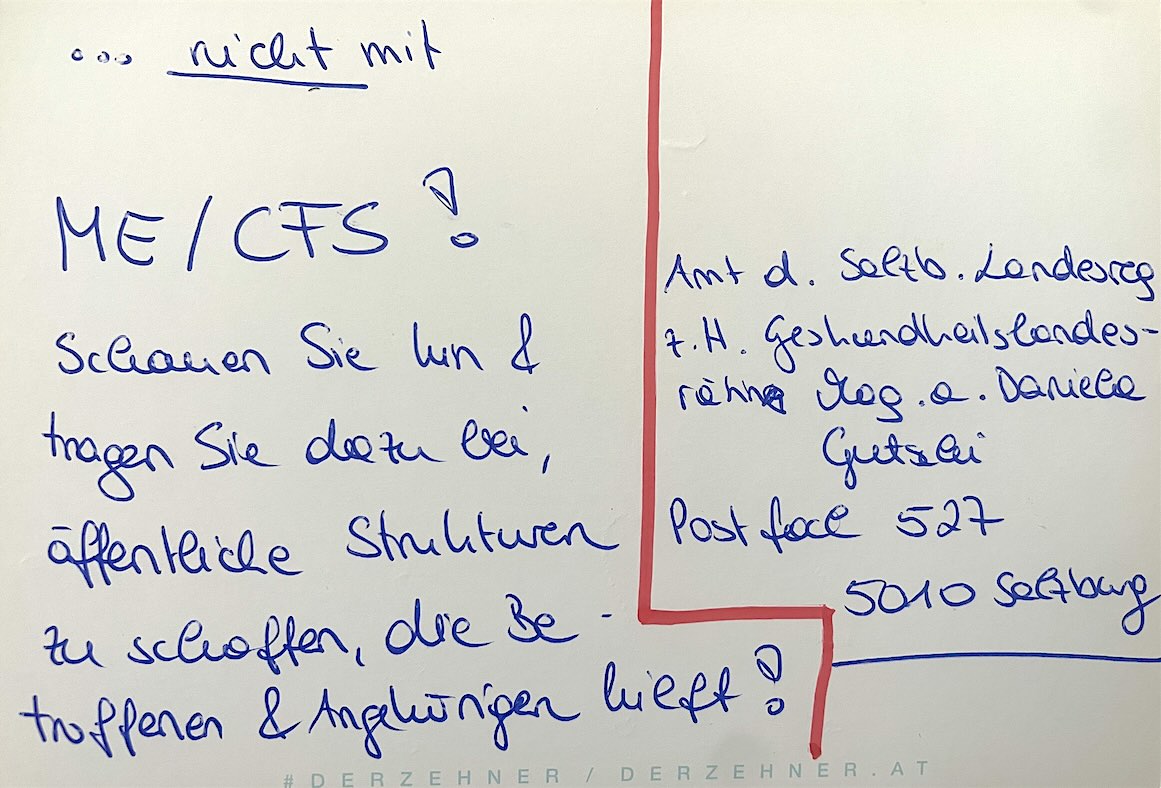 ... nicht mit
ME/CFS!
Schauen Sie hin &
tragen Sie dazu bei,
öffentliche Strukturen
zu schaffen, die Be-
troffenen & Angehörigen hilft!
Amt d. Salzb. Landesreg
z.H. Geshundheitslandes-
rätin Mag.a. Daniela
Gutschi
Postfach 527
5010 Salzburg
#DERZEHNER / DERZEHNER.AT